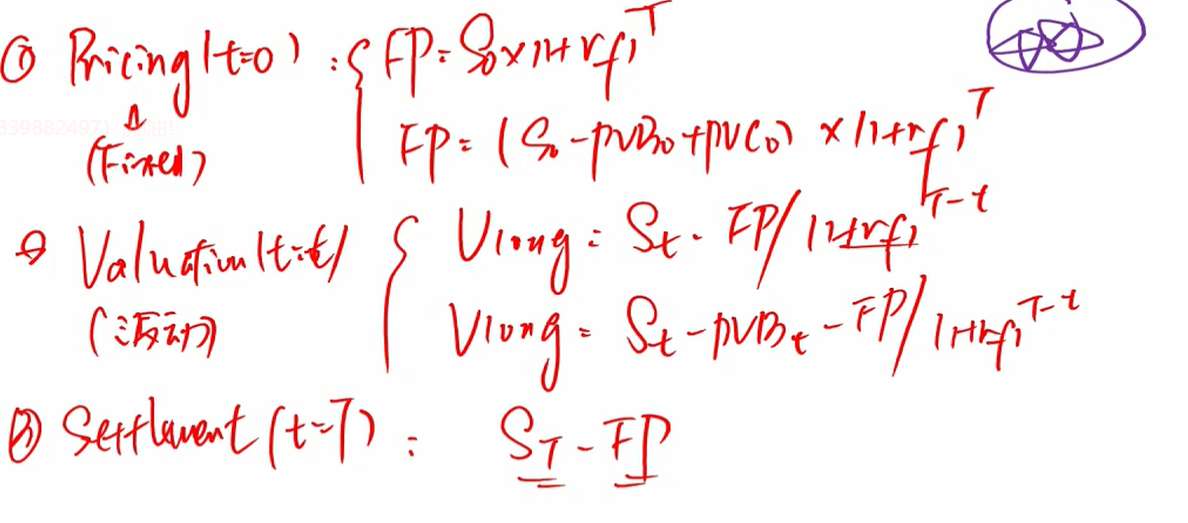 ① Pricing (t=0) : { FP = S₀ × (1+rf)^T
(Fixed) FP = (S₀ - PVB₀ + PVC₀) × (1+rf)^T
② Valuation (t=t) { Vlong = St - FP/(1+rf)^T-t
(波动) Vlong = St - PVBt - FP/(1+rf)^T-t
③ Settlement (t=T) : ST - FP